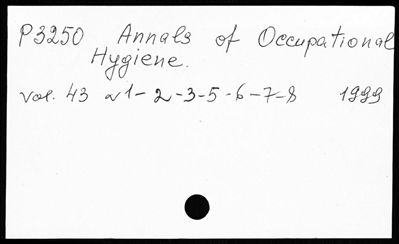 P3250 Annals of Occupational
Hygiene.
vol. 43 N 1-2-3-5-6-7-8 1999